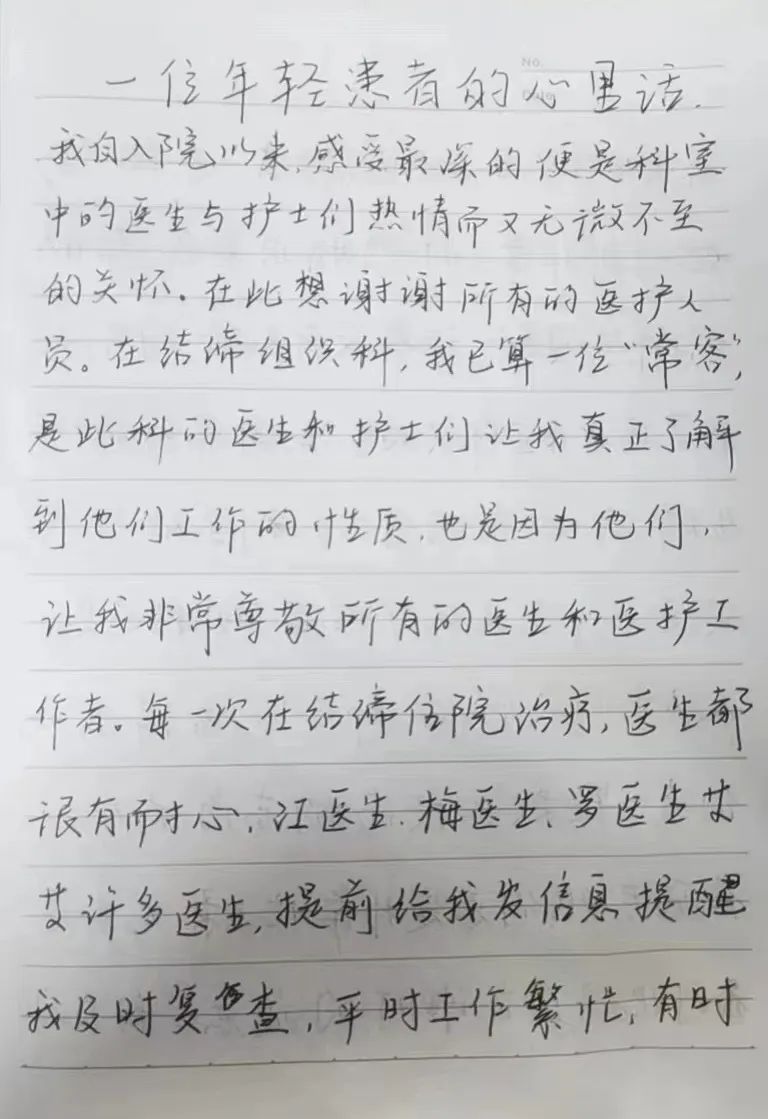 No.
一位年轻患者的心里话.
我自入院以来,感受最深的便是科室
中的医生与护士们热情而又无微不至
的关怀。在此想谢谢所有的医护人
员。在结缔组织科,我已算一位“常客”,
是此科的医生和护士们让我真正了解
到他们工作的性质,也是因为他们,
让我非常尊敬所有的医生和医护工
作者。每一次在结缔住院治疗,医生都
很有耐心,江医生.梅医生、罗医生艾
艾许多医生,提前给我发信息提醒
我及时复查,平时工作繁忙,有时